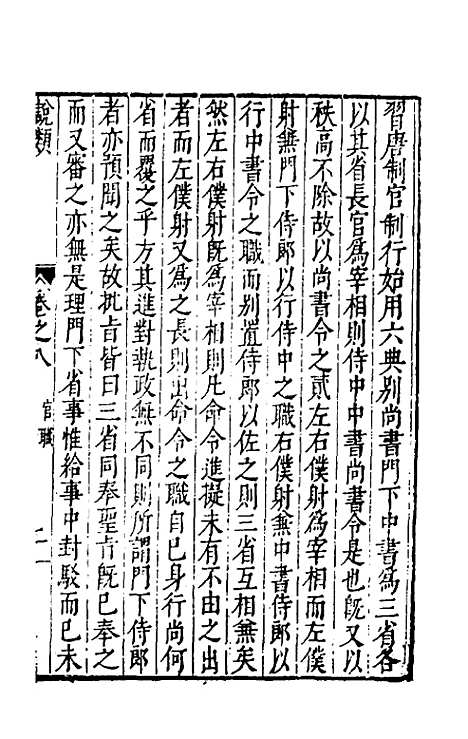 習唐制官制行始用六典别尚書門下中書爲三省各
以其省長官爲宰相則侍中中書尚書令是也旣又以
秩高不除故以尚書令之貳左右僕射爲宰相而左僕
射兼門下侍郎以行侍中之職右僕射兼中書侍郎以
行中書令之職而别置侍郎以佐之則三省互相兼矣
然左右僕射旣爲宰相則凡命令進擬未有不由之出
者而左僕射又爲之長則出命令之職自已身行尚何
省而覆之乎方其進對執政無不同則所謂門下侍郎
者亦預聞之矣故批旨皆曰三省同奉聖旨旣已奉之
而又審之亦無是理門下省事惟給事中封駁而已未
說類
卷之八
官職